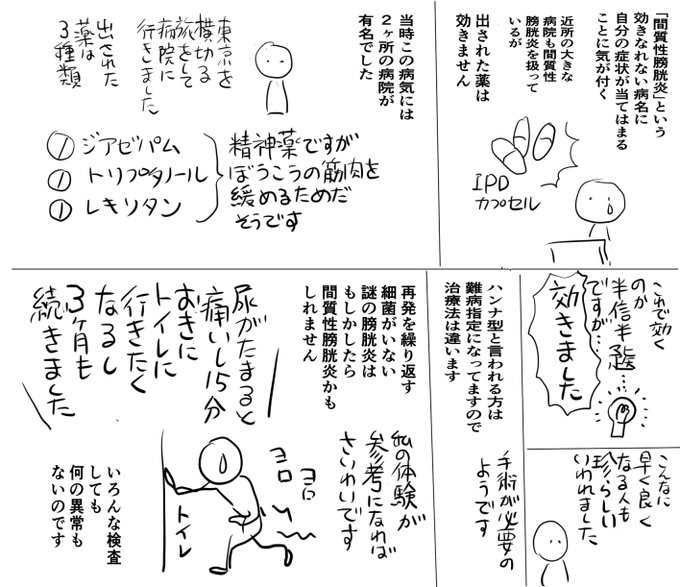 「間質性膀胱炎」という
効きなれない病名に
自分の症状が当てはまる
ことに気が付く
近所の大きな
病院も間質性
膀胱炎を扱って
いるが
出された薬は
効きません
IPD
カプセル
当時この病気には
2ヶ所の病院が
有名でした
東京を
横切る
旅をして
病院に
行きました
出された
薬は
3種類
① ジアゼパム
① トリプタノール
① レキソタン
精神薬ですが
ぼうこうの筋肉を
緩めるためだ
そうです
これで効く
のか
半信半疑…
ですが…
効きました
こんなに
早く良く
なる人も
珍らしい
いわれました
ハンナ型と言われる方は
難病指定になってますので
治療法は違います
手術が必要の
ようです
再発を繰り返す
細菌がいない
謎の膀胱炎は
もしかしたら
間質性膀胱炎かも
しれません
私の体験が
参考になれば
さいわいです
尿がたまると
痛いし15分
おきに
トイレに
行きたく
なるし
3ヶ月も
続きました
ヨロ
ヨロ
トイレ
いろんな検査
しても
何の異常も
ないのです